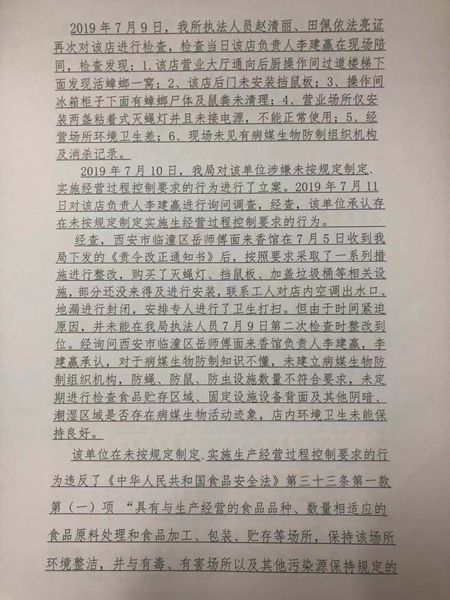 2019年7月9日，我所执法人员赵清丽、田佩依法亮证
再次对该店进行检查，检查当日该店负责人李建赢在现场陪
同，检查发现：1、该店营业大厅通向后厨操作间过道楼梯下
面发现活蟑螂一窝；2、该店后门未安装挡鼠板；3、操作间
冰箱柜子下面有蟑螂尸体及鼠粪未清理；4、营业场所仅安
装两盏粘着式灭蝇灯并且未接电源，不能正常使用；5、经
营场所环境卫生差；6、现场未见有病媒生物防制组织机构
及消杀记录。
2019年7月10日，我局对该单位涉嫌未按规定制定、
实施经营过程控制要求的行为进行了立案。2019年7月11
日对该店负责人李建赢进行询问调查，经查，该单位承认存
在未按规定制定实施生经营过程控制要求的行为。
经查，西安市临潼区岳师傅面来香馆在7月5日收到我
局下发的《责令改正通知书》后，按照要求采取了一系列措
施进行整改，购买了灭蝇灯、挡鼠板、加盖垃圾桶等相关设
施，部分还没来得及进行安装，联系工人对店内空调出水口、
地漏进行封闭，安排专人进行了卫生打扫。但由于时间紧迫
原因，并未能在我局执法人员7月9日第二次检查时整改到
位。经询问西安市临潼区岳师傅面来香馆负责人李建赢，李
建赢承认，对于病媒生物防制知识不懂，未建立病媒生物防
制组织机构，防蝇、防鼠、防虫设施数量不符合要求，未定
期进行检查食品贮存区域、固定设施设备背面及其他阴暗、
潮湿区域是否存在病媒生物活动迹象，店内环境卫生未能保
持良好。
该单位在未按规定制定、实施生产经营过程控制要求的行
为违反了《中华人民共和国食品安全法》第三十三条第一款
第（一）项 “具有与生产经营的食品品种、数量相适应的
食品原料处理和食品加工、包装、贮存等场所，保持该场所
环境整洁，并与有毒、有害场所以及其他污染源保持规定的